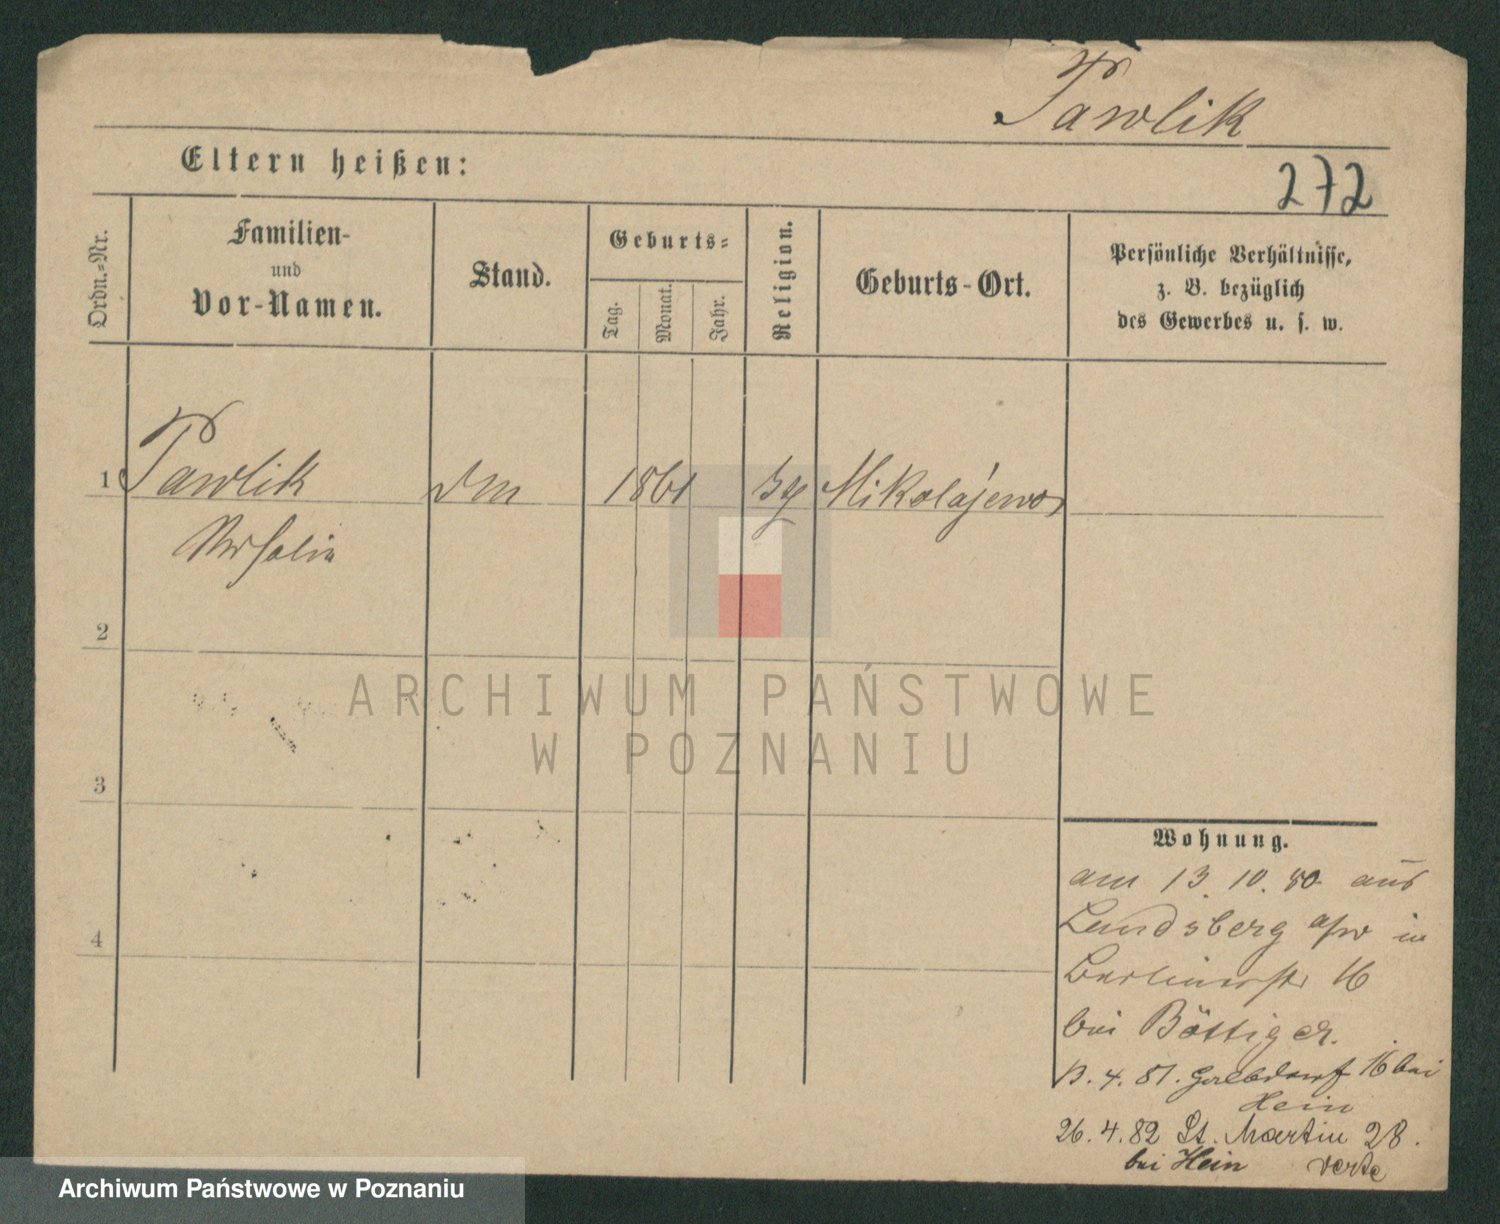 Pawlik
Eltern heißen:
272
Ordn.-Nr.
Familien-
und
Vor-Namen.
Stand.
Geburts-
Tag.
Monat.
Jahr.
Religion.
Geburts-Ort.
Persönliche Verhältnisse,
z. B. bezüglich
des Gewerbes u. s. w.
1 Pawlik 1861 Mikolajewo
2
ARCHIWUM PAŃSTWOWE
W POZNANIU
3
4
Wohnung.
am 13. 10. 80 aus
Landsberg a/w in
Berlinerstr 16
bei Böttiger.
4. 81. 16 bei
Hein
26. 4. 82 St. Martin 28.
bei Hein verte
Archiwum Państwowe w Poznaniu